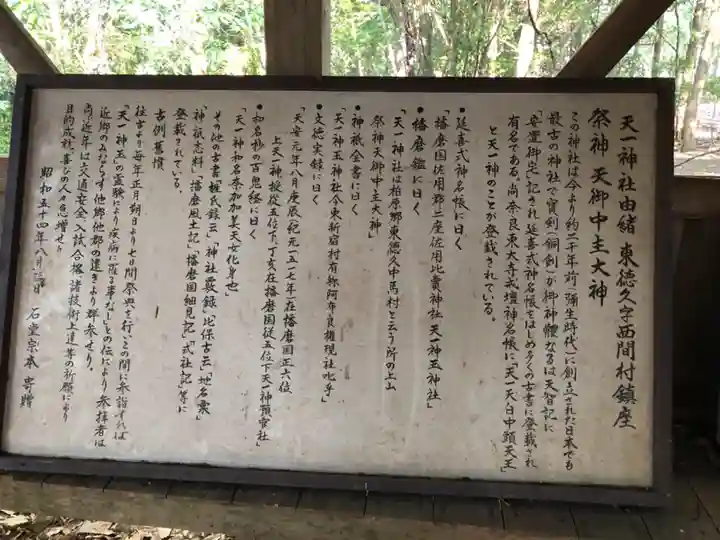 天一神社由緒 東徳久字西間村鎮座
祭神 天御中主大神
この神社は今より約二千年前(弥生時代)に創立された日本でも
最古の神社で「宝剣(銅剣)が御神體なるは天智記に
「安置御宅」記され延喜式神名帳をはじめ多くの古書に登載され
有名である。尚奈良東大寺戒壇神名帳に「天一天白中頭天王」
と天一神のことが登載されている。
●延喜式神名帳に曰く
「播磨国佐用郡二座佐用比賣神社 天一神玉神社」
●播磨鑑に曰く
「天一神社は柏原郷東徳久中馬村と云う所の上山
祭神天御中主大神」
●神祇全書に曰く
「天一神玉神社今東新宿村有称阿奈良権現社此乎」
●文徳実録に曰く
「天安元年八月庚辰(紀元一五一七年)在播磨国正六位
上天一神授従五位下、丁亥在播磨国従五位下天一神預官社」
●和名抄の百鬼経に曰く
「天一神和名奈加加美天女化身也」
その他の古書「姓氏録」云「神社覈録」比保古云「地名索」
「神祇志料」「播磨風土記」「播磨国細見記」「式社記」等に
登載されている。
古例旧慣
往古より毎年正月朔日より七日間祭典を行いこの間に参詣すれば
「天一神玉の霊験により疾病に罹る事なし」との伝により参拝者は
近郷のみならず他郷他郡の遠きより群参せり。
尚、近年は交通安全、入試合格、諸技術上達等の祈願により
目的成就、喜びの人々急増せり
昭和五十四年八月 日 石堂宗本 寄贈